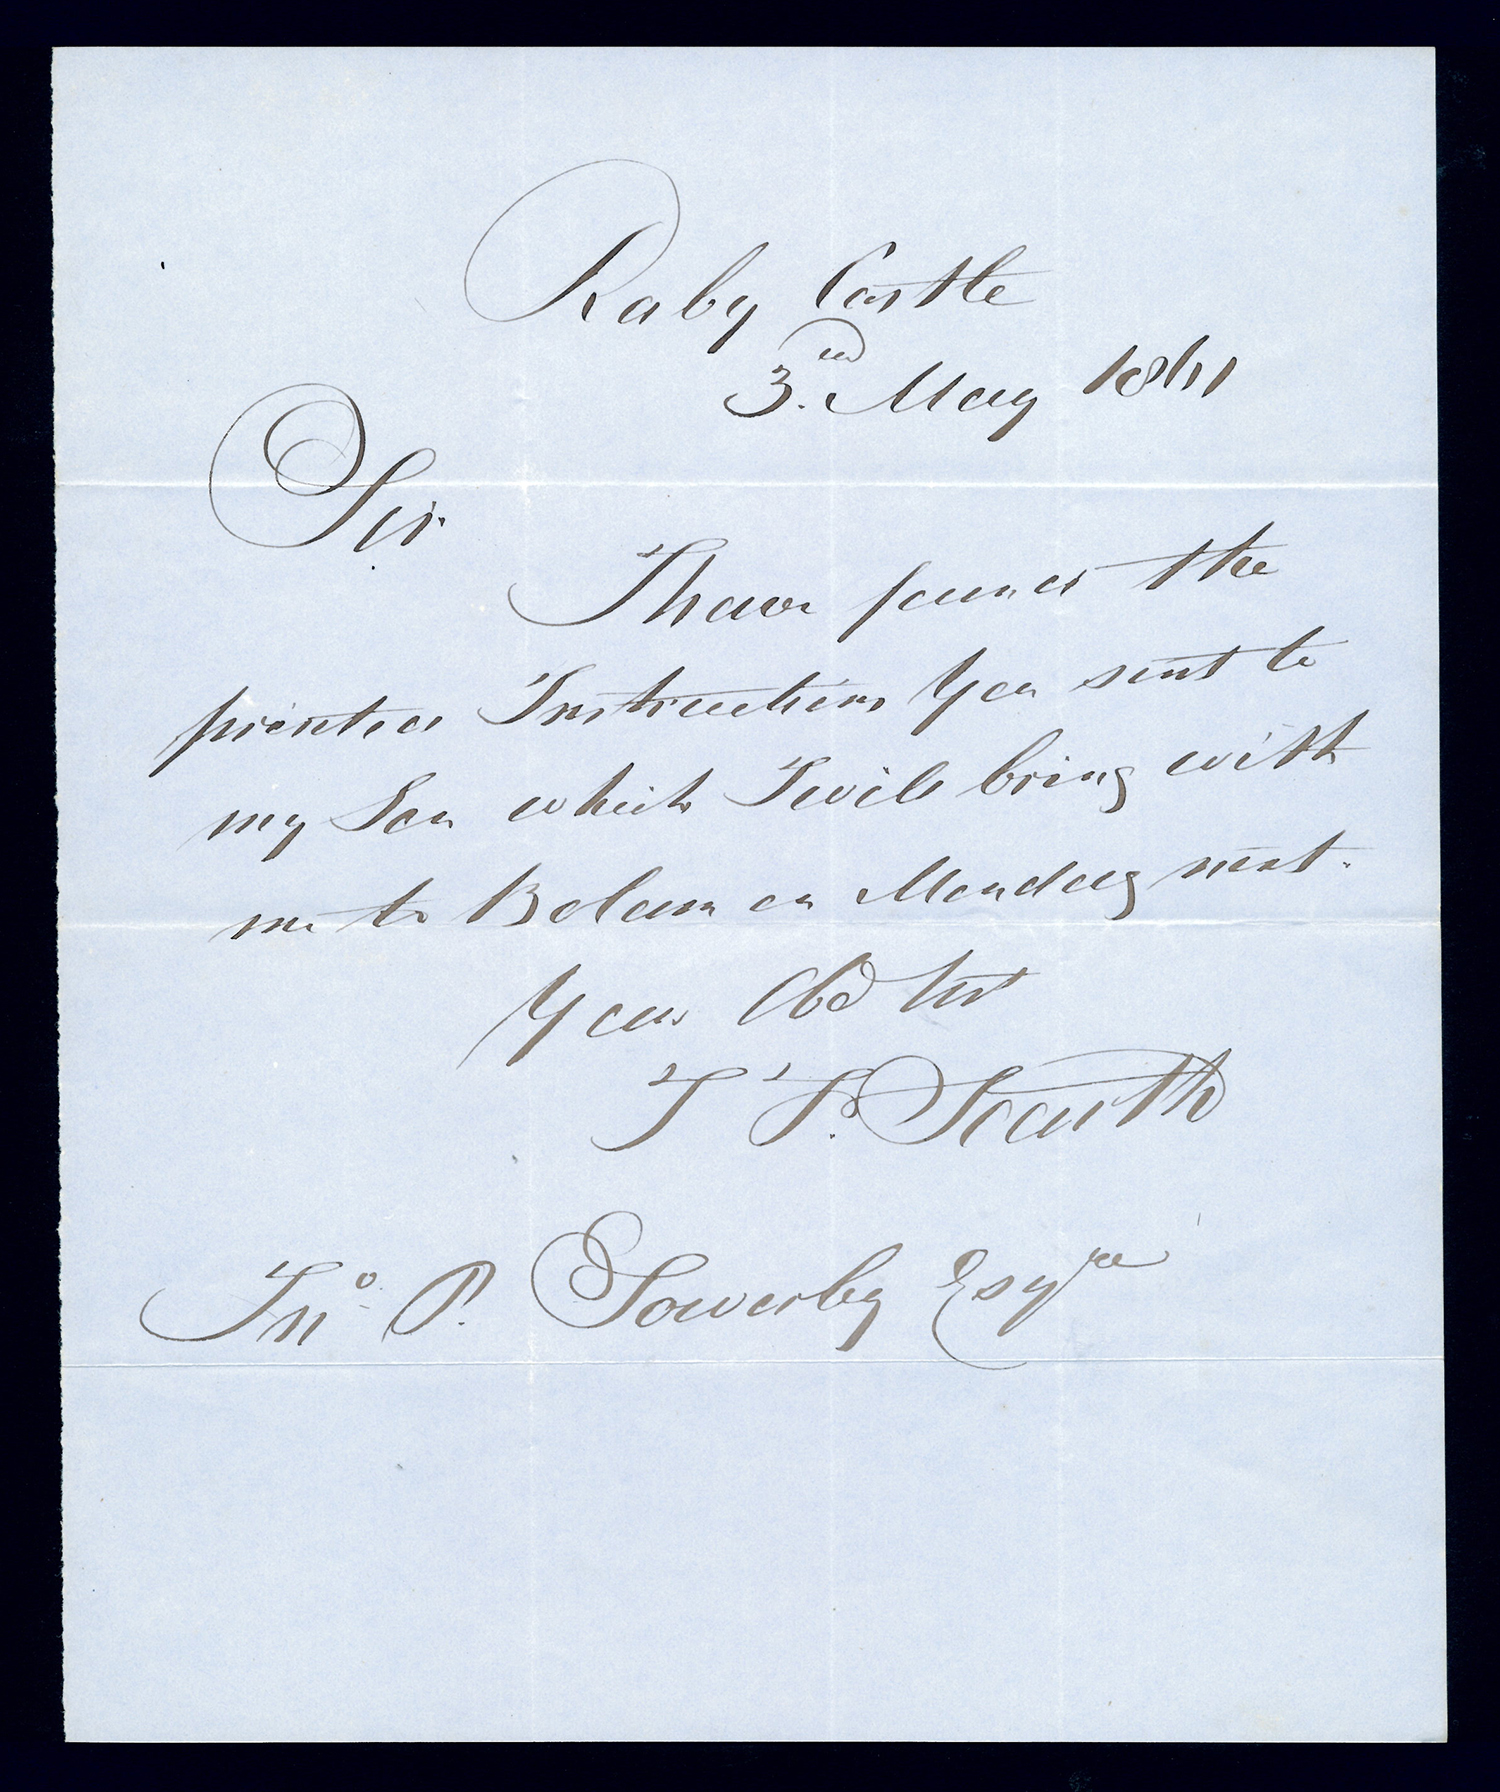 Raby Castle
3rd. May 1861
Sir
I have found the
printed Instructions You sent to
my Son which I will bring with
me to Bolam on Monday next.
Your Obd Svt
T. F. Scarth
Jno. P. Sowerby Esqre